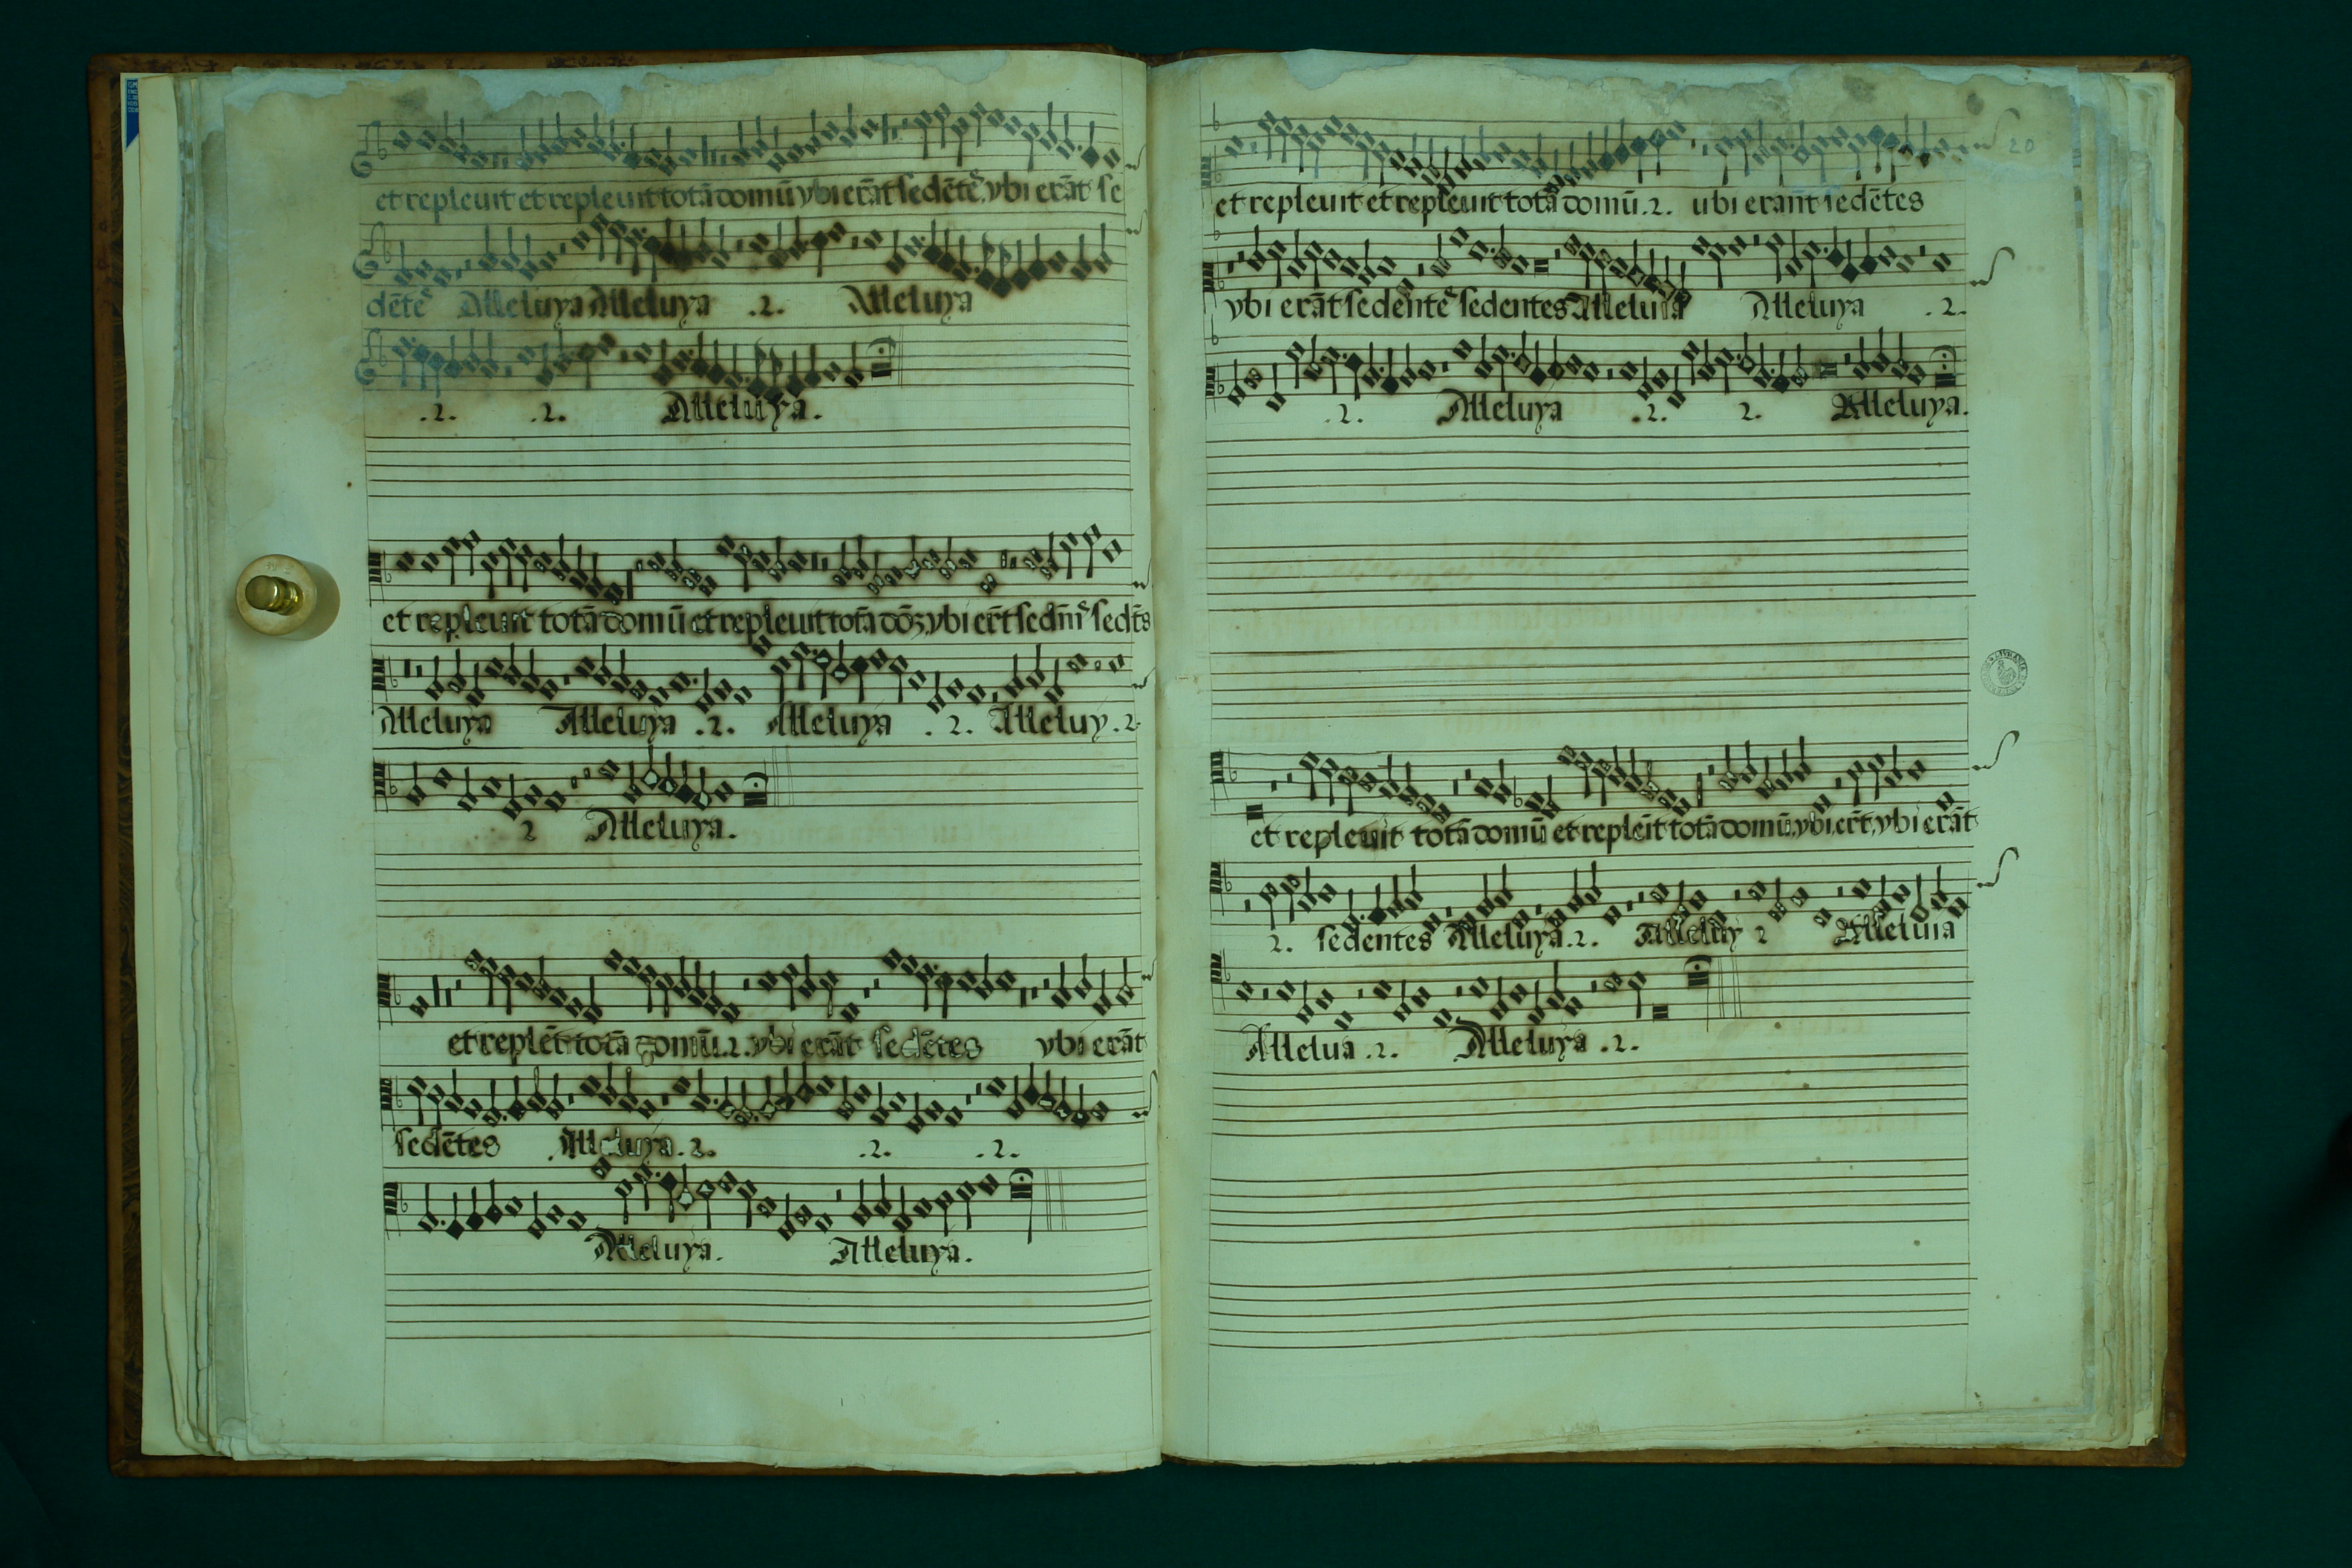 et repleuit et repleuit totā domū ybi erāt sedētẽ, ybi erāt se
dētẽ Alleluya Alleluya .2. Alleluya
.2. .2. Alleluya.
et repleuit totā domū et repleuit totā dōʒ, ybi er̄t sedn̄ sedt̄s
Alleluya Alleluya .2. Alleluya .2. Alleluy .2.
2 Alleluya.
et replēt totā domū .2. ybi erāt sedētes ybi erāt
sedētes Alleluya .2. .2. .2.
Alleluya. Alleluya.
20
et repleuit et repleuit totā domū .2. ubi eran̄t sedētes
ybi erāt sedentẽ sedentes Alleluia Alleluya .2.
.2. Alleluya .2. 2. Alleluya.
et repleuit totā domū et repleīt totā domū, ybi, er̄t, ybi erāt
2. sedentes Alleluya .2. Alleluy 2 Alleluia
Allelua .2. Alleluya .2.